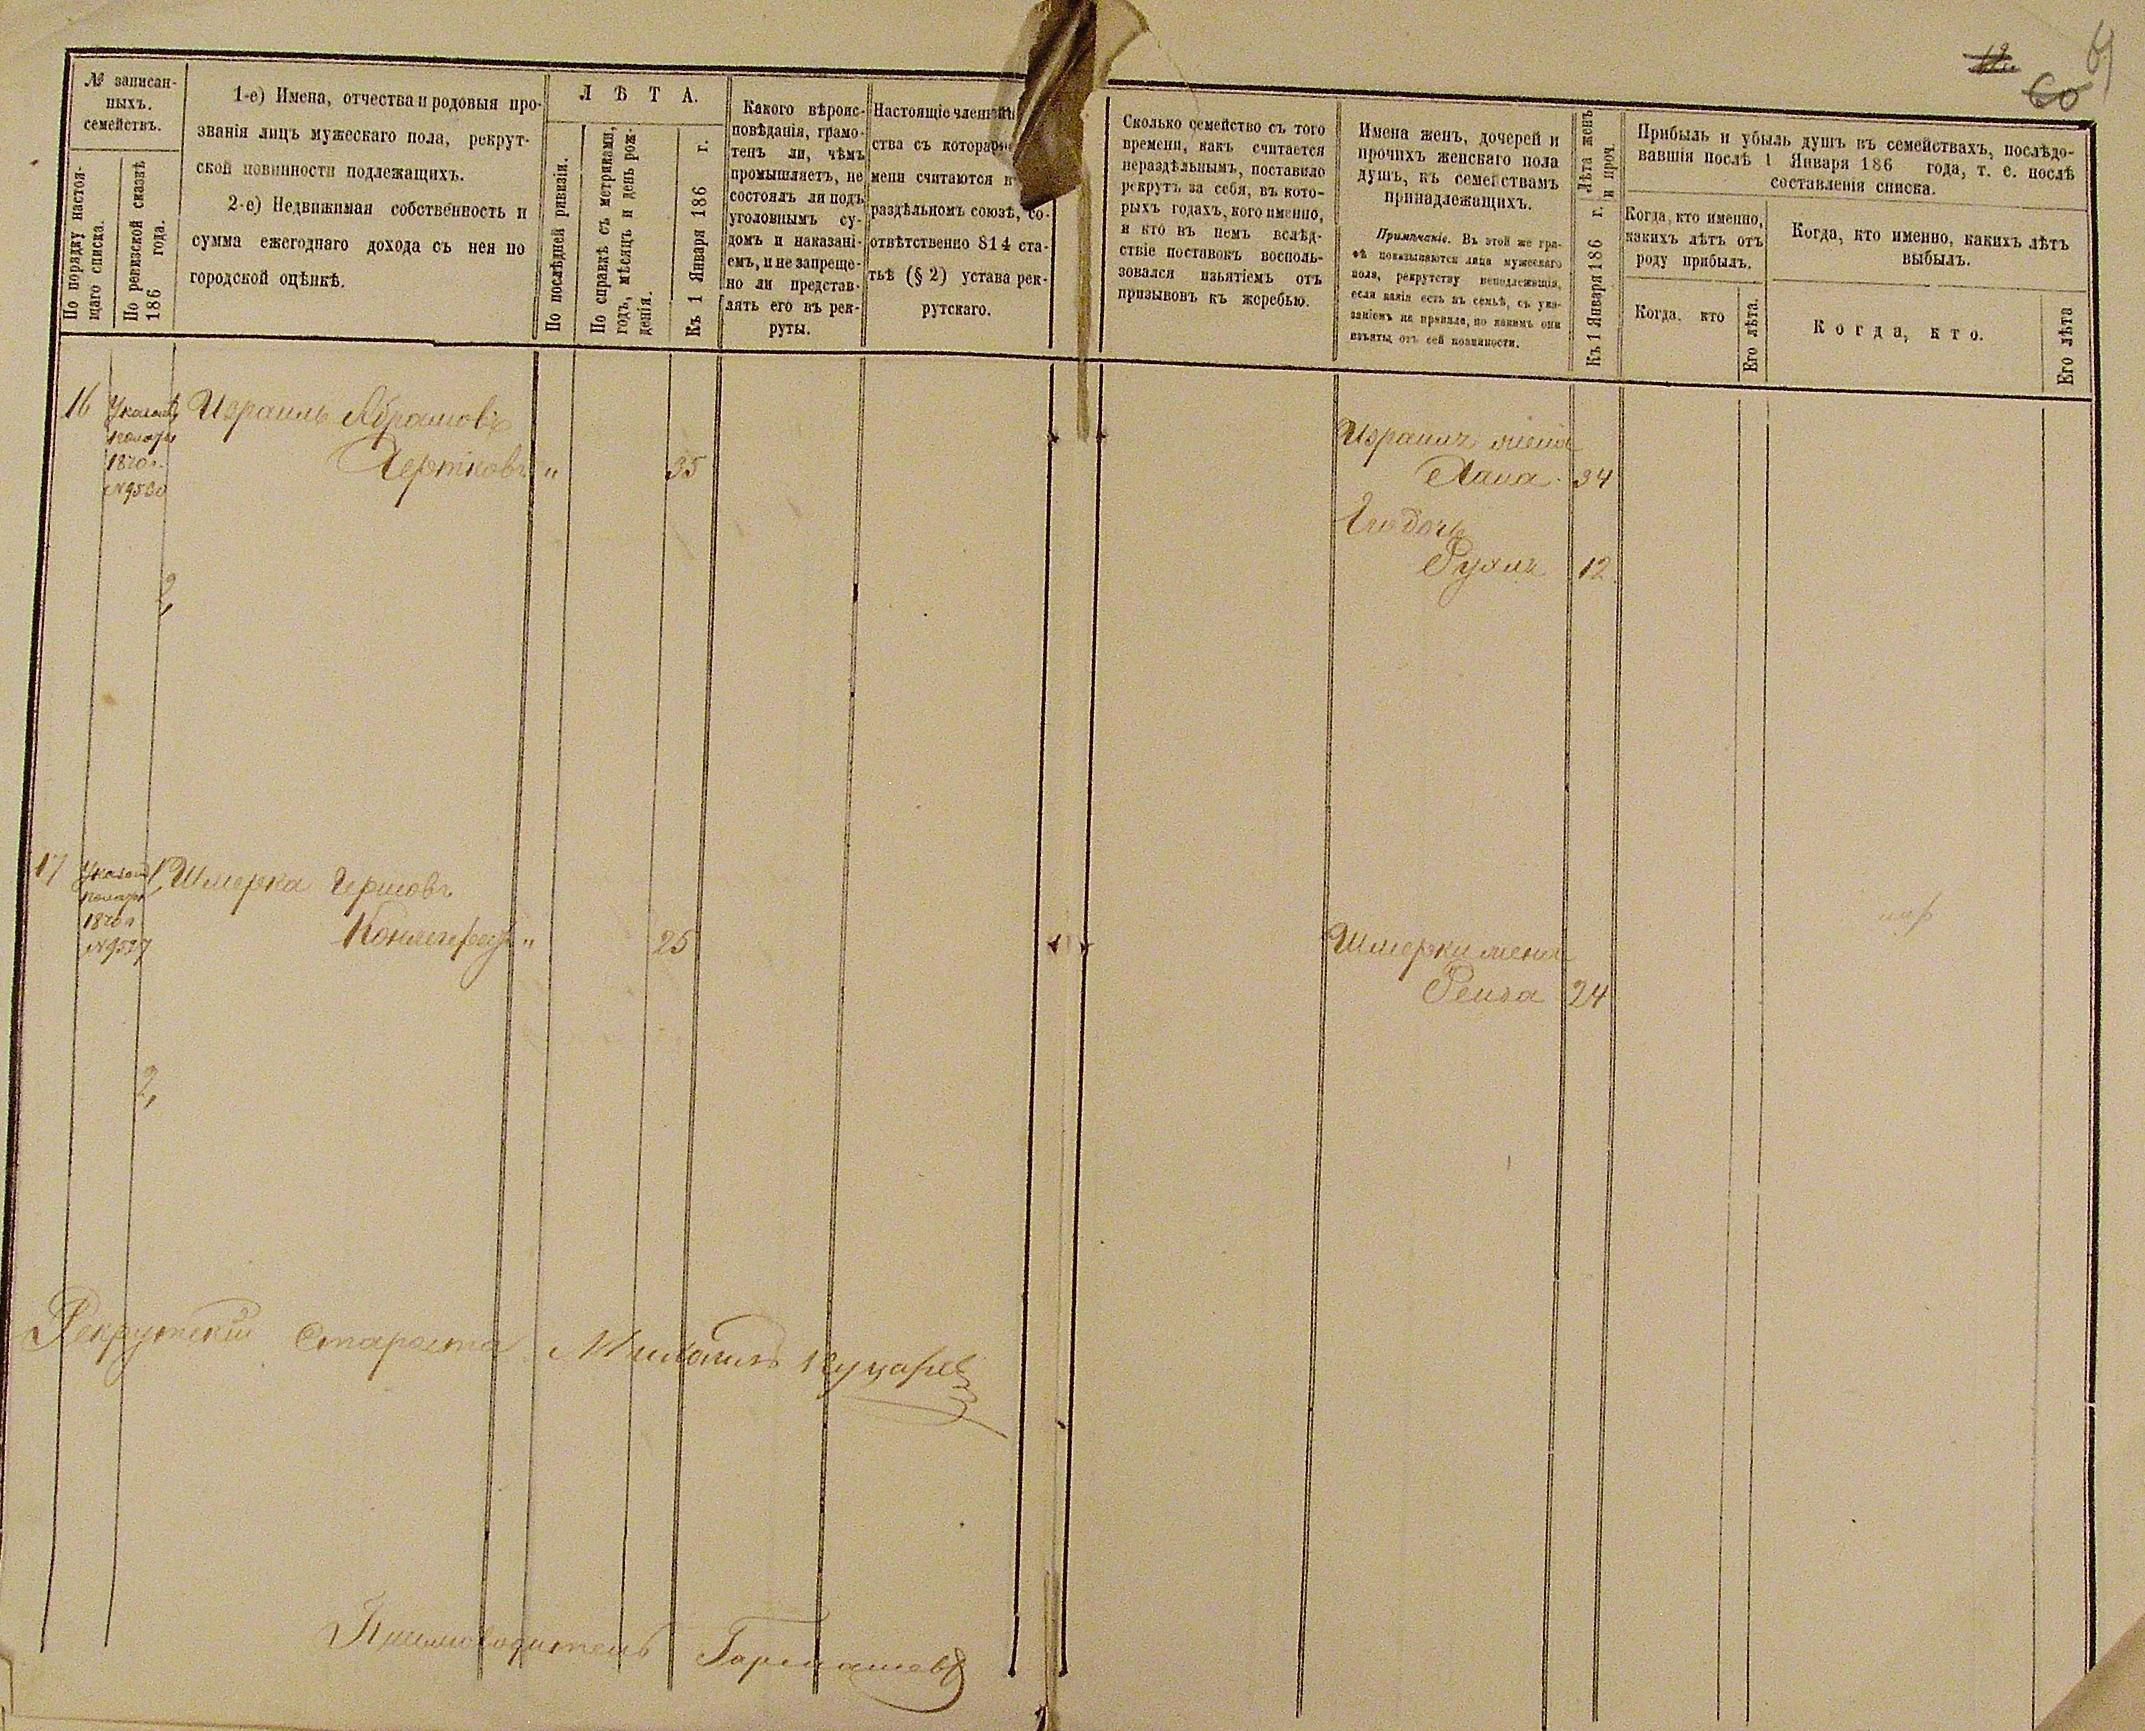 № записан-
ныхъ.
семействъ.
По порядку настоя-
щаго списка.
По ревизской сказкѣ
186 года.
1-е) Имена, отчества и родовыя про-
званія лицъ мужескаго пола, рекрут-
ской повинности подлежащихъ.
2-е) Недвижимая собственность и
сумма ежегоднаго дохода съ нея по
городской оцѣнкѣ.
Л Ѣ Т А.
По послѣдней ривизіи.
По справкѣ съ метриками,
годъ, мѣсяцъ и день рож-
денія.
Къ 1 Января 186 г.
Какого вѣроис-
повѣданія, грамо-
тенъ ли, чѣмъ
промышляетъ, не
состоялъ ли подъ
уголовнымъ су-
домъ и наказані-
емъ, и не запреще-
но ли представ-
лять его въ рек-
руты.
Настоящіе члены
ства съ котораго
мени считаются
раздѣльномъ союзѣ, со-
отвѣтственно 814 ста-
тьѣ (§ 2) устава рек-
рутскаго.
Сколько семейство съ того
времени, какъ считается
нераздѣльнымъ, поставило
рекрутъ за себя, въ кото-
рыхъ годахъ, кого именно,
и кто въ немъ вслѣд-
ствіе поставокъ восполь-
зовался изъятіемъ отъ
призывовъ къ жеребью.
Имена женъ, дочерей и
прочихъ женскаго пола
душъ, къ семействамъ
принадлежащихъ.
Примѣчаніе. Въ этой же гра-
фѣ показываются лица мужескаго
пола, рекрутству неподлежащія,
если какія есть въ семьѣ, съ ука-
заніемъ на правила, по какимъ они
изъяты отъ сей повинности.
Лѣта женъ
и проч.
Къ 1 Января 186 г.
Прибыль и убыль душъ въ семействахъ, послѣдо-
вавшія послѣ 1 Января 186 года, т. е. послѣ
составленія списка.
Когда, кто именно,
какихъ лѣтъ отъ
роду прибылъ.
Когда, кто
Его лѣта.
Когда, кто именно, какихъ лѣтъ
выбылъ.
Когда, кто.
Его лѣта
60
16
1870г.
Израиль Абрамовъ
Хертковъ " 35
Израиля жена
Хана 34
Его дочь
Рухля 12
2,
17
1870г.
Шмерка Гершовъ
" 25
Шмерки жена
Рейза 24
2,
Рекрутскій Староста
Письмоводитель